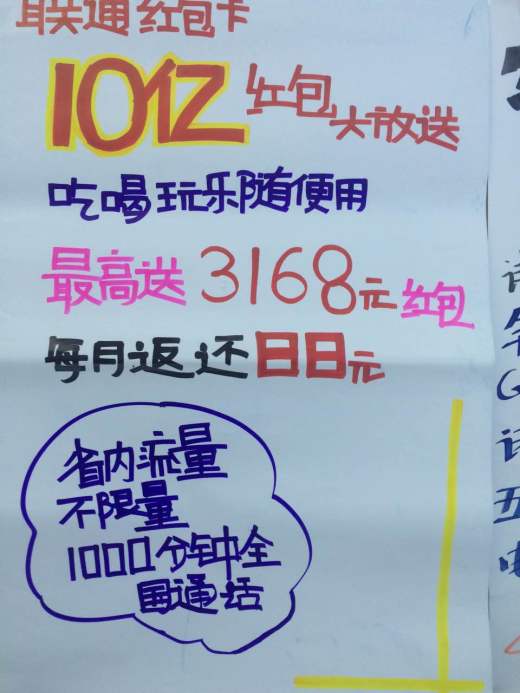 联通红包卡
10亿红包大放送
吃喝玩乐随便用
最高送3168元红包
每月返还88元
省内流量
不限量
1000分钟全
国通话
五
电